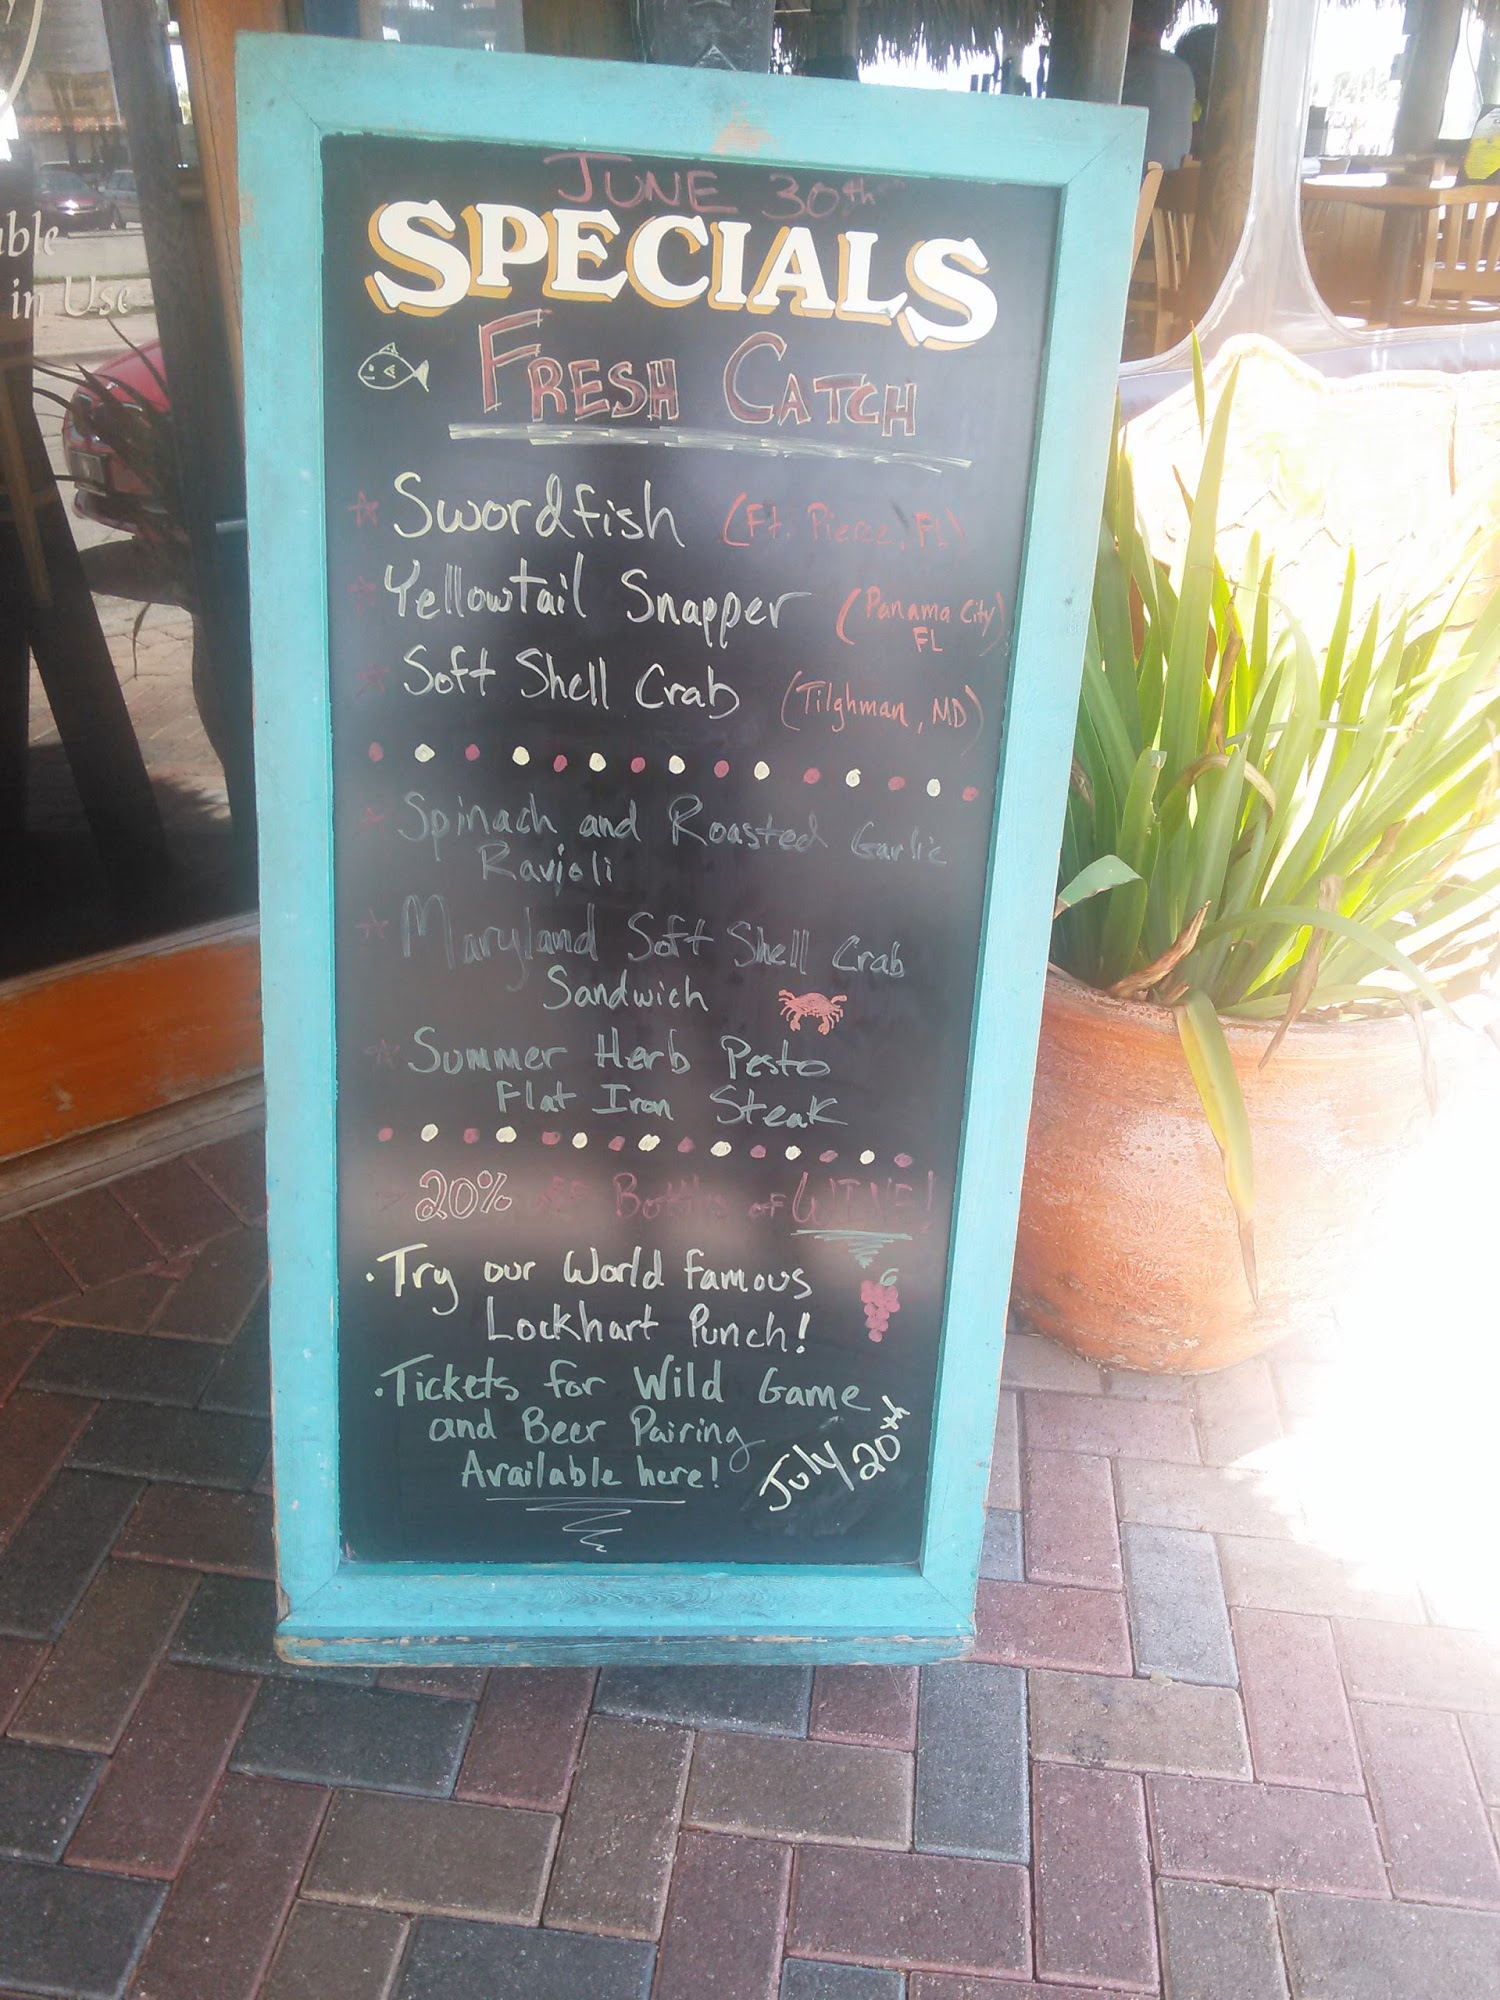 able
in Use
JUNE 30th
SPECIALS
FRESH CATCH
Swordfish (Ft. Pierce, FL)
Yellowtail Snapper (Panama City, FL)
Soft Shell Crab (Tilghman, MD)
Spinach and Roasted Garlic
Ravioli
Maryland Soft Shell Crab
Sandwich
Summer Herb Pesto
Flat Iron Steak
20% off Bottles of WINE!
. Try our World Famous
Lockhart Punch!
. Tickets for Wild Game
and Beer Pairing
Available here!
July 20th